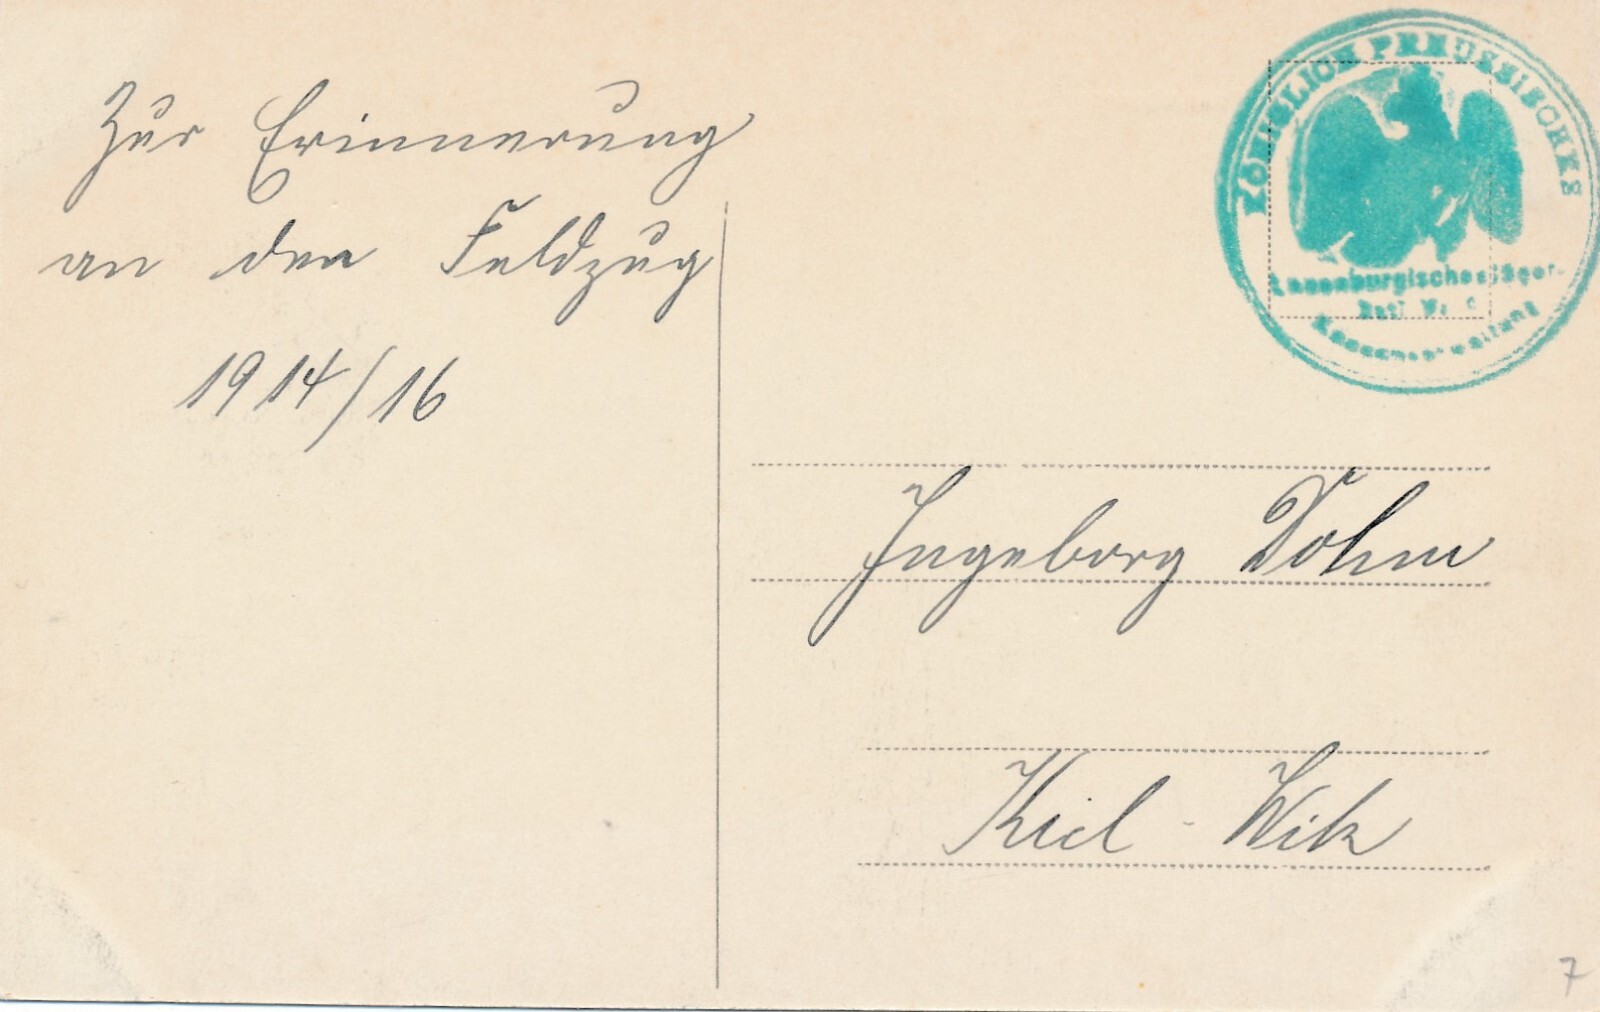 Zur Erinnerung
an den Feldzug
1914/16
KÖNIGLICH PREUSSISCHES
Lauenburgisches Jäger-
Batl Nr. 9
Kassenverwaltung
Ingeborg Dohm
Kiel - Wik
7